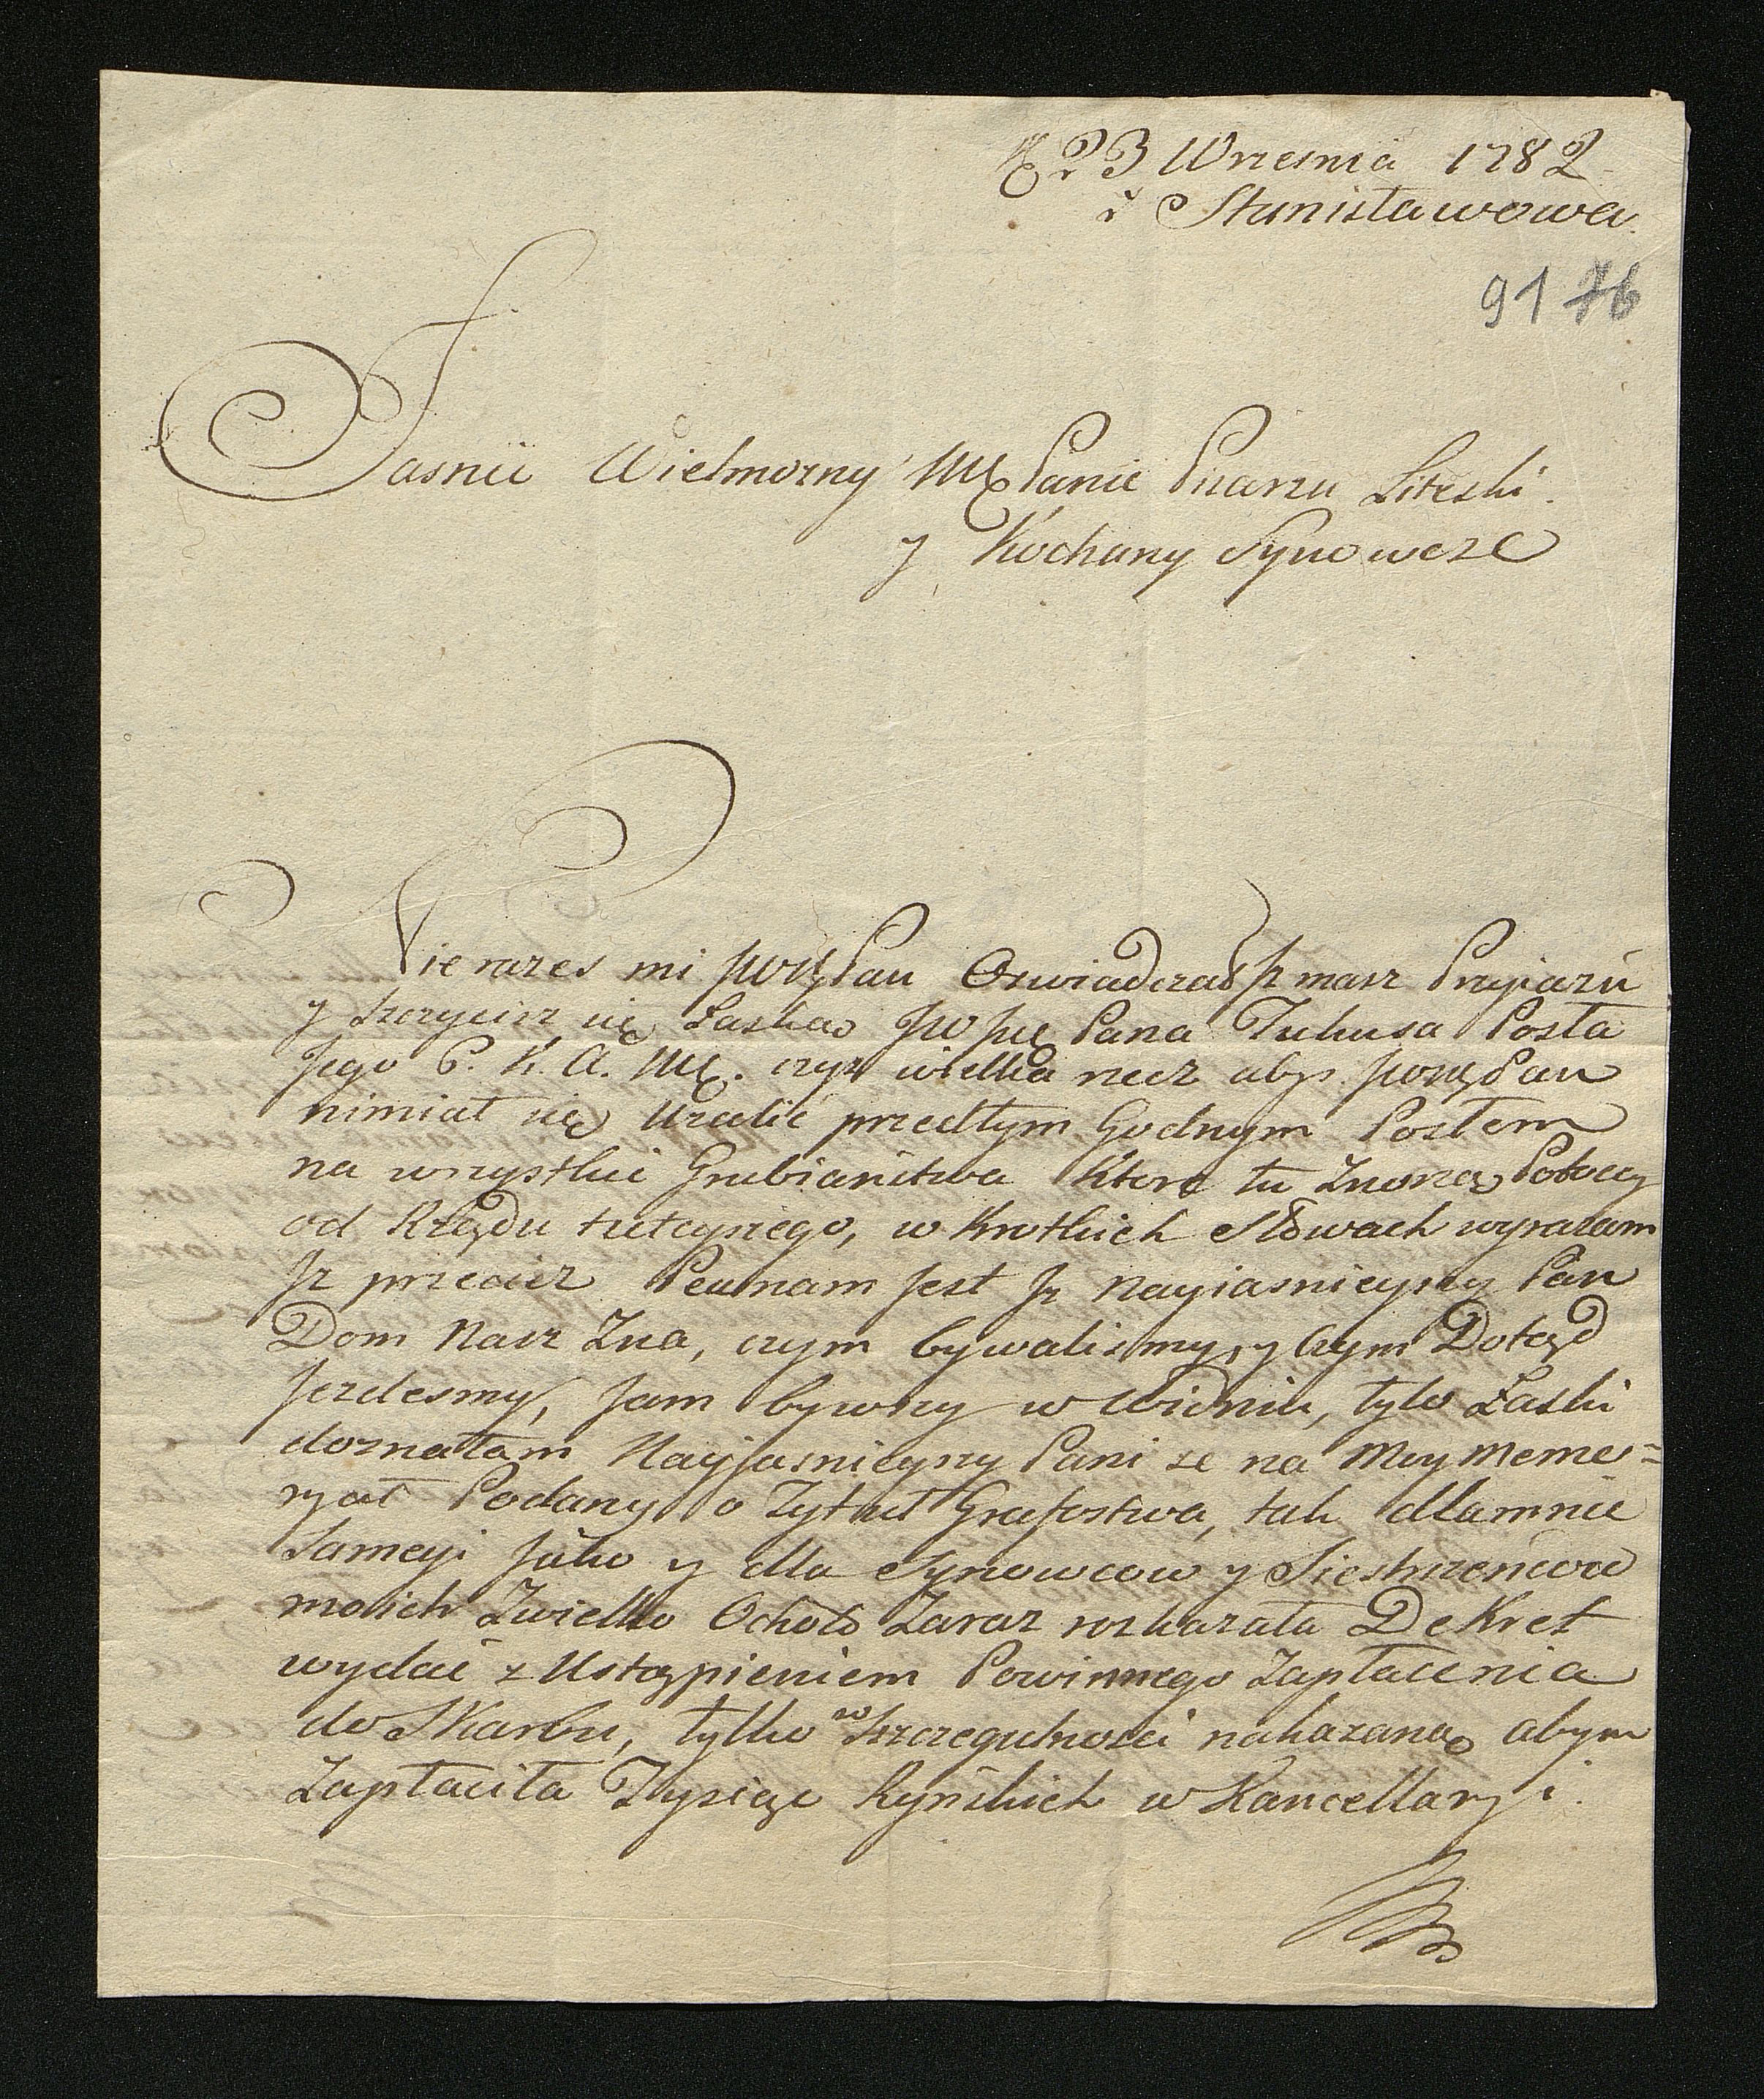 23 Wrzesnia 1782
z Stanisławowa.
91 76
Jasnie Wielmozny Mę Panie Pisarzu Liteski.
y Kochany Synowcze
Nie razes mi JWWę Pan Oswiadczał Jz masz Przyiazń
y szczycisz się Łaską JW Jmę Pana Tuhusa Posła
Jego C. K. A. Mę. czyz wielka rzecz abys JWWę Pan
nimiał się Uzalic przedtym Godnym Posłem
na wszystkie Grubiaństwa Ktore tu Znoszą Potoccy
od Rządu tuteyszego, w Krotkich Słowach wyrazam
Jz przeciez Pewnam Jest Jz Nayiasnieyszy Pan
Dom Nasz Zna, czym bywalismy, y Czym Dotąd
Jezdesmy, Jam bywszy w Widniu, tylo Łaski
doznałam Nayjasnieyszy Pani ze na Moy Meme=
ryał Podany o Tytuł Grafostwa, tak dlamnie
Samey jako y dla Synowcow y Siestrzencow
moich Zwielko Ochoto Zaraz rozkazała DeKret
wydać z Ustąpieniem Powinnego Zapłacenia
do SKarbu, tylko w Szczegulnosci nakazano abym
Zapłaciła Tysiąc Ryńskich w Kancellaryi.